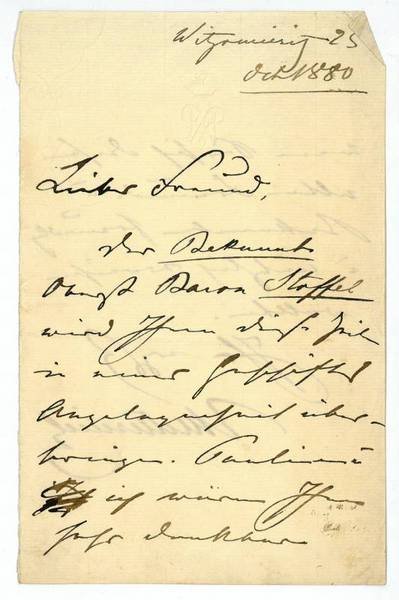 Witzomieritz 25
Oct. 1880
Lieber Freund,
der Bekannte
Oberst Baron Stoffel
wird Ihnen diese Zeilen
in einer Geschäfts
Angelegenheit über-
bringen. Pauline u
ich wären Ihnen
sehr dankbar